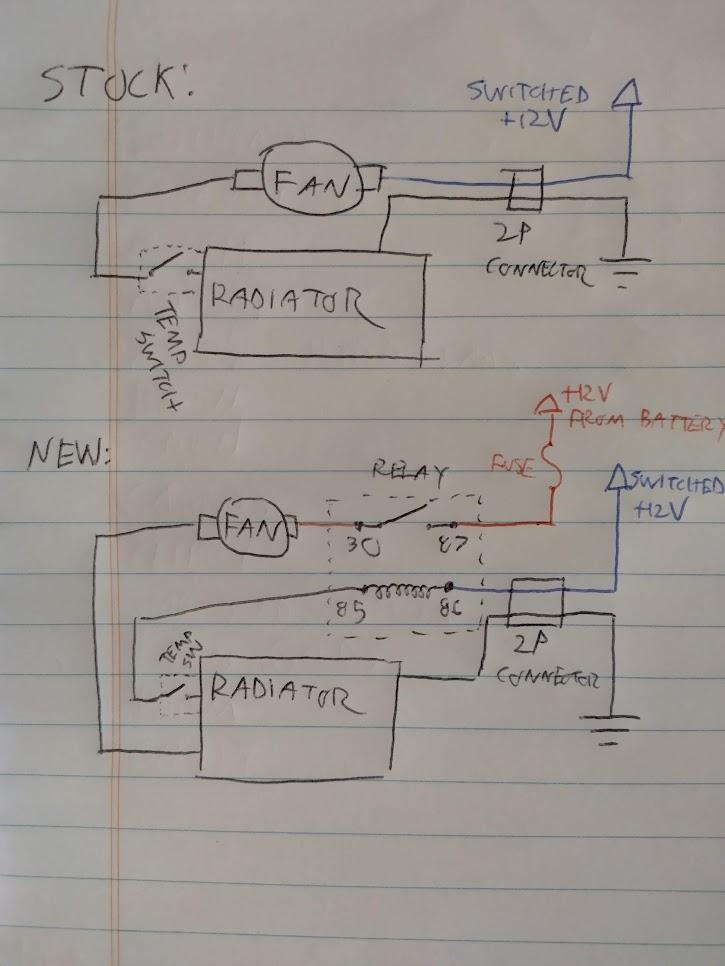 STOCK:
SWITCHED
+12V
FAN
2P
CONNECTOR
RADIATOR
TEMP
SWITCH
+12V
FROM BATTERY
NEW:
RELAY
FUSE
SWITCHED
+12V
FAN
30
87
85
86
TEMP
SW
2P
CONNECTOR
RADIATOR